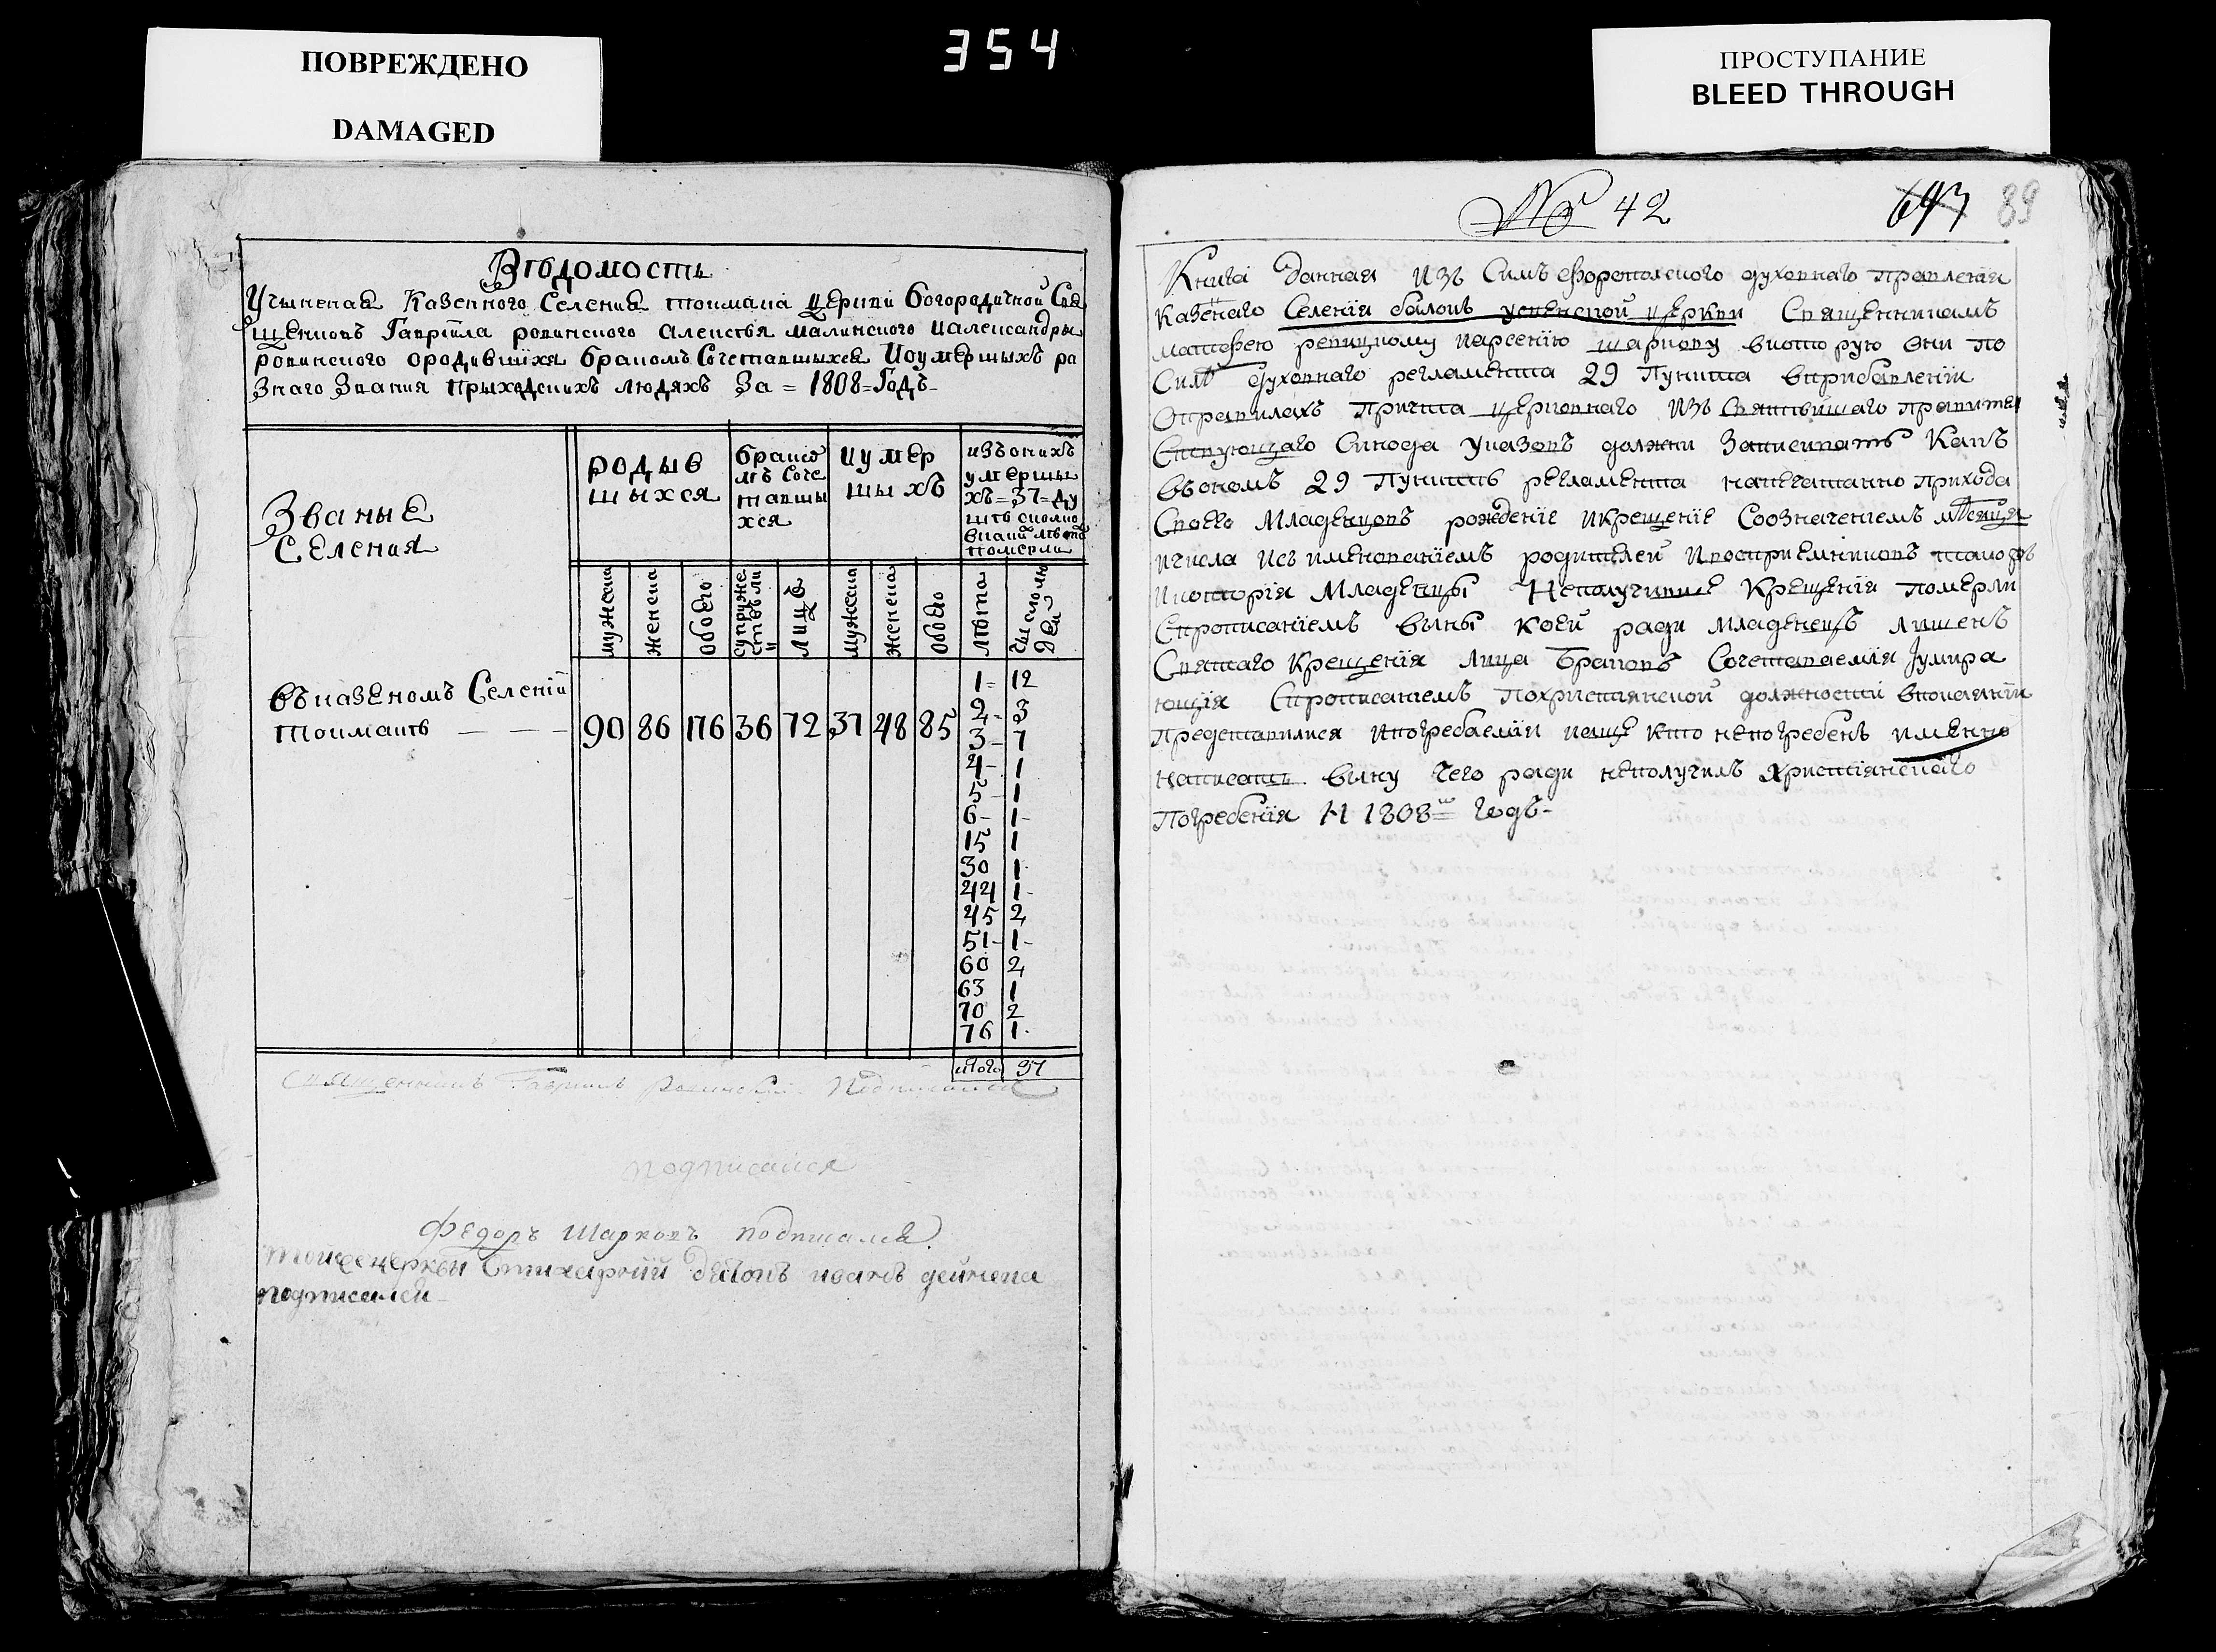 ПОВРЕЖДЕНО
DAMAGED
354
ПРОСТУПАНИЕ
BLEED THROUGH
Вѣдомость
Учыненая Казенного Селения токмака церкви Богородичной Свя
щенновъ Гаврїила ровинского алексѣя малинского иалександры
ровинского ородившїхся бракомъ Сочетавшыхся Иоумершыхъ ра
знаго Звания прыходскихъ людяхъ За = 1808 = Годъ
Званые
Селения
родыв
шыхся
бракө
мъ соче
тавшы
хся
иумер
шыхъ
изъ оныхъ
умершы
хъ = 37 = ду
мужеска
женска
обоего
супруже
лицъ
мужеска
женска
обоего
лѣта
въ казеномъ Селенїй
токмакѣ — — —
90 86 176 36 72 37 48 85
1 = 12
2 - 3
3 - 7
4 - 1
5 - 1
6 - 1 -
15 1
30 1
44 1 -
45 2
51 - 1 -
60 2
63 1
70 2
76 1.
итого 37
Священникъ Гавриилъ Ровинскій Подписался
подписался
Федоръ Шарковъ подписался
тойже церкви Стихарній дяконъ иванъ дейнека
подписался
№ 42
643 89
Книга Данная Изъ Симъферополского духовнаго правленія
Казенаго Селенїя балокъ успенской церкви Священникамъ
матфею репицкому парфенїю шаркову вкоторую они по
Силѣ духовнаго регламента 29 Пункта вприбавленїи
Оправилахъ Причта церковнаго Изъ Святѣйшаго правител
Ствующаго Синода Указовъ должни Записивать Какъ
въ ономъ 29 Пунктѣ регламента напечатанно Прихода
Своего Младенцовъ рожденїе икрещенїе Соозначенїемъ мѣсяца
ичисла исъ именованїемъ родителей Ивосприемниковъ
икоторїя Младенцы Неполучивше Крещенїя померли
Спрописанїемъ вины коей ради младенецъ лишенъ
Святаго Крещенїя Лица Браковъ Сочетаваемїя Іумира
ющїя Спрописанїемъ Похристиянской должности впокаянїи
Представилися Ипогребаемїи иеще кто непогребенъ именно
написать вину чего ради неполучилъ христїянскаго
Погребенїя Н 1808й годъ -